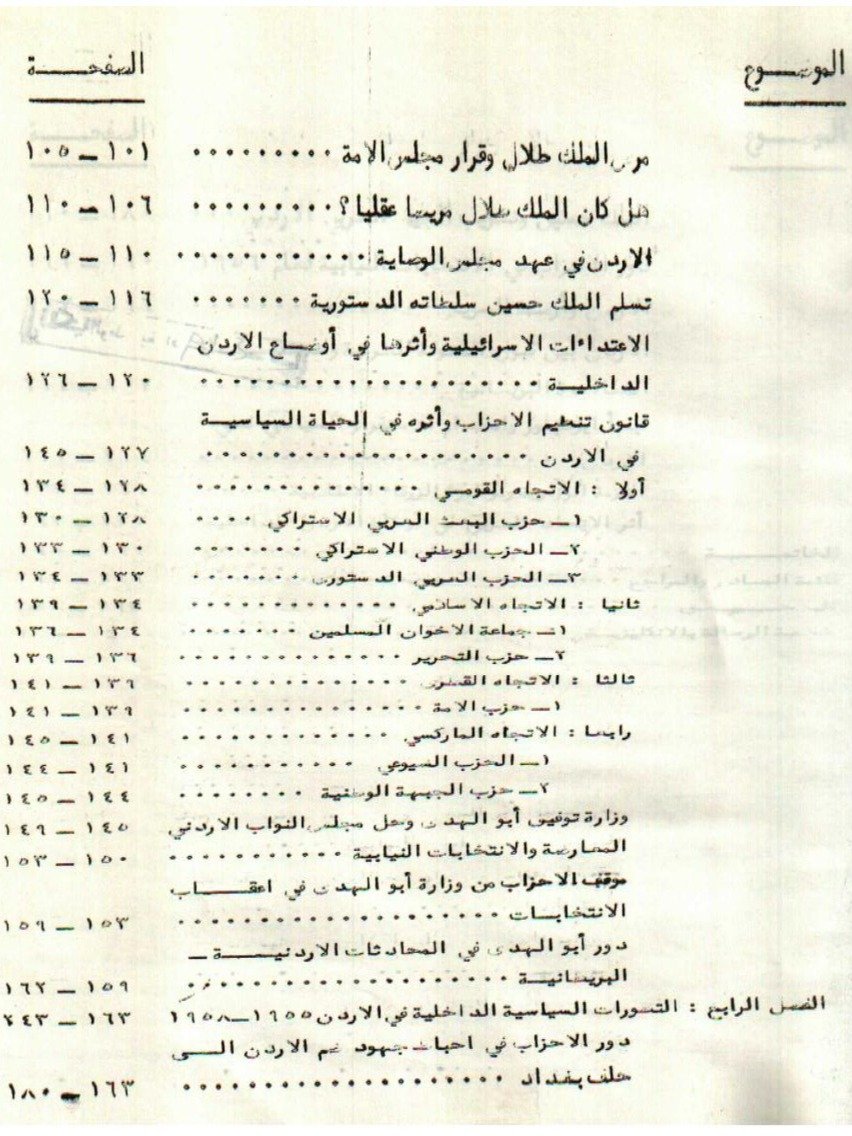 الموضوع الصفحة
مرض الملك طلال وقرار مجلس الامة ٠٠٠٠٠٠٠٠٠ ١٠١ ــ ١٠٥
هل كان الملك طلال مريضا عقليا؟ ٠٠٠٠٠٠٠٠٠ ١٠٦ ــ ١١٠
الاردن في عهد مجلس الوصاية ٠٠٠٠٠٠٠٠٠٠٠٠ ١١٠ ــ ١١٥
تسلم الملك حسين سلطاته الدستورية ٠٠٠٠٠٠٠ ١١٦ ــ ١٢٠
الاعتداءات الاسرائيلية وأثرها في أوضاع الاردن
الداخلية ٠٠٠٠٠٠٠٠٠٠٠٠٠٠٠٠٠٠٠٠ ١٢٠ ــ ١٢٦
قانون تنظيم الاحزاب وأثره في الحياة السياسية
في الاردن ٠٠٠٠٠٠٠٠٠٠٠٠٠٠٠٠٠٠٠ ١٢٧ ــ ١٤٥
أولا : الاتجاه القومي ٠٠٠٠٠٠٠٠٠٠٠٠٠٠ ١٢٨ ــ ١٣٤
١ــ حزب البعث العربي الاشتراكي ٠٠٠٠ ١٢٨ ــ ١٣٠
٢ــ الحزب الوطني الاشتراكي ٠٠٠٠٠٠٠ ١٣٠ ــ ١٣٣
٣ــ الحزب العربي الدستوري ٠٠٠٠٠٠٠ ١٣٣ ــ ١٣٤
ثانيا : الاتجاه الاسلامي ٠٠٠٠٠٠٠٠٠٠٠٠٠ ١٣٤ ــ ١٣٩
١ــ جماعة الاخوان المسلمين ٠٠٠٠٠٠٠ ١٣٤ ــ ١٣٦
٢ــ حزب التحرير ٠٠٠٠٠٠٠٠٠٠٠٠٠٠ ١٣٦ ــ ١٣٩
ثالثا : الاتجاه القطرى ٠٠٠٠٠٠٠٠٠٠٠٠٠٠ ١٣٩ ــ ١٤١
١ــ حزب الامة ٠٠٠٠٠٠٠٠٠٠٠٠٠٠٠ ١٣٩ ــ ١٤١
رابعا : الاتجاه الماركسي ٠٠٠٠٠٠٠٠٠٠٠٠٠ ١٤١ ــ ١٤٥
١ــ الحزب الشيوعي ٠٠٠٠٠٠٠٠٠٠٠ ١٤١ ــ ١٤٤
٢ــ حزب الجبهة الوطنية ٠٠٠٠٠٠٠٠ ١٤٤ ــ ١٤٥
وزارة توفيق أبو الهدى وحل مجلس النواب الاردني ١٤٥ ــ ١٤٩
المعارضة والانتخابات النيابية ٠٠٠٠٠٠٠٠٠٠٠ ١٥٠ ــ ١٥٣
موقف الاحزاب من وزارة أبو الهدى في اعقـــاب
الانتخابـات ٠٠٠٠٠٠٠٠٠٠٠٠٠٠٠٠٠٠٠ ١٥٣ ــ ١٥٩
دور أبو الهدى في المحادثات الاردنيـــة ــ
البريطانيـة ٠٠٠٠٠٠٠٠٠٠٠٠٠٠٠٠٠٠٠ ١٥٩ ــ ١٦٢
الفصل الرابع : التطورات السياسية الداخلية في الاردن ١٩٥٥ــ١٩٥٨ ١٦٣ ــ ٢٤٣
دور الاحزاب في احباط جهود ضم الاردن الــى
حلف بغداد ٠٠٠٠٠٠٠٠٠٠٠٠٠٠٠٠٠٠٠ ١٦٣ ــ ١٨٠